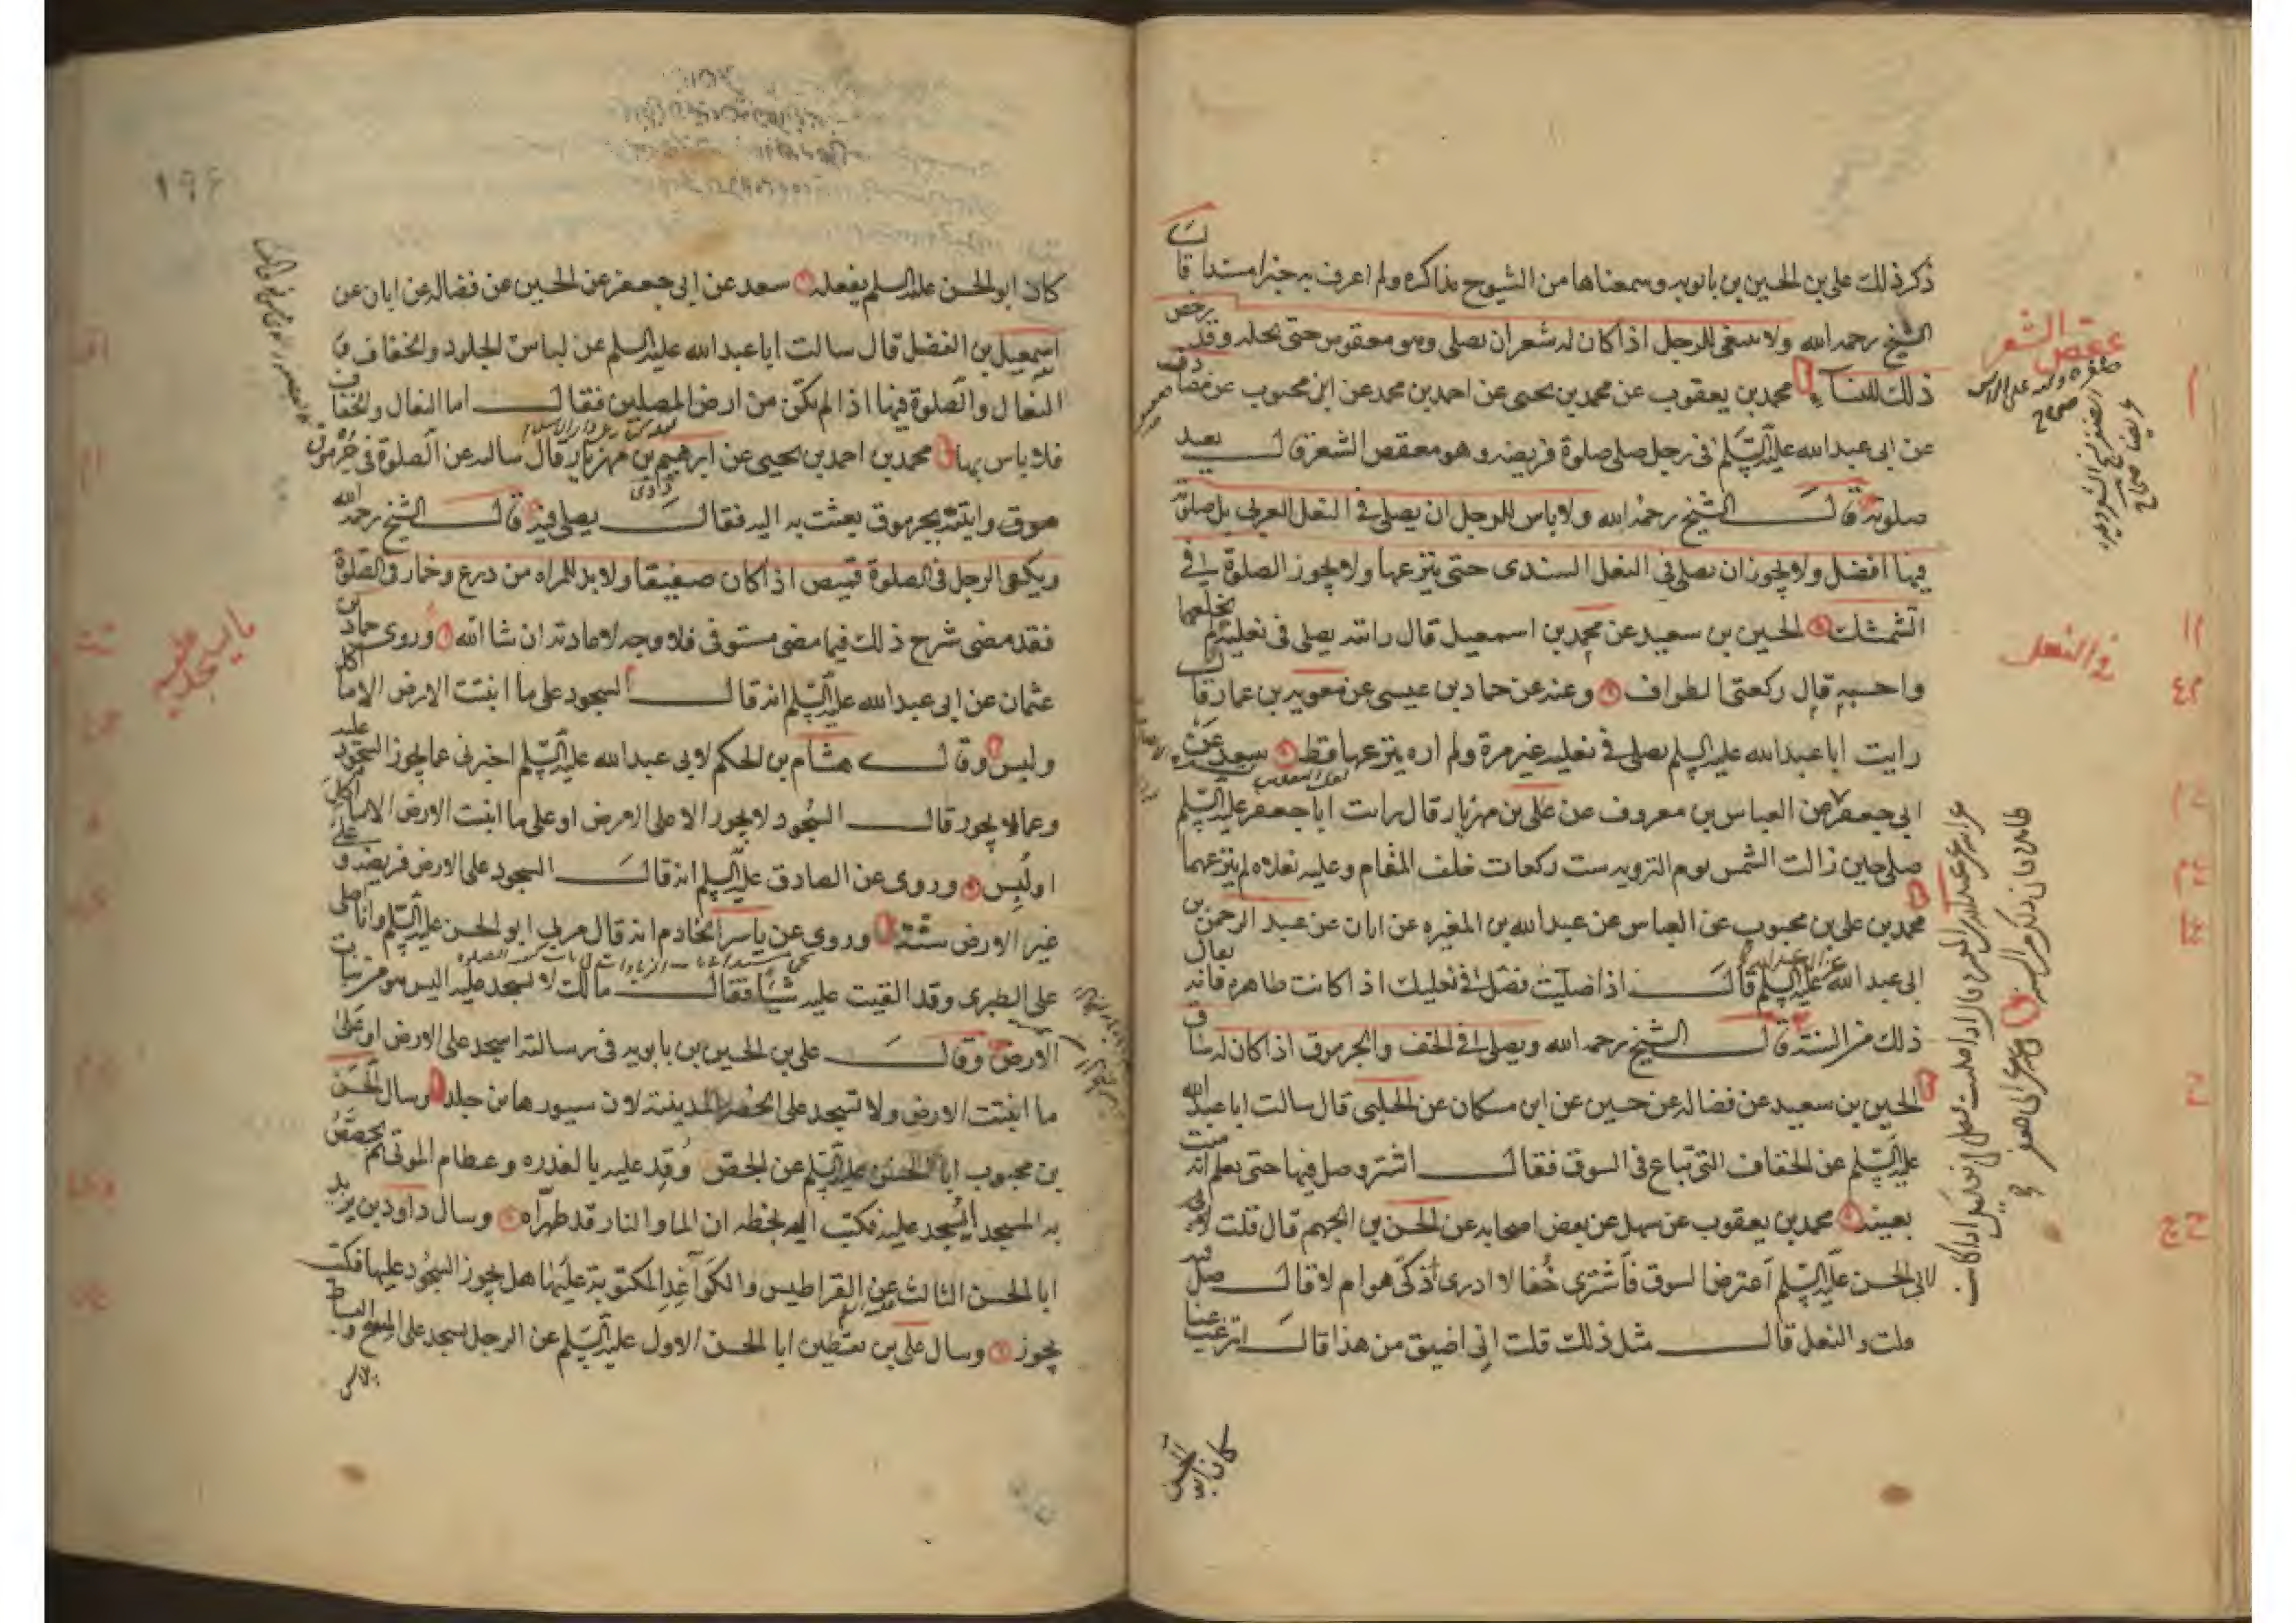 ذكر ذلك علي بن الحسين بن بابويه وسمعناها من الشيوخ مذاكرة ولم اعرف به خبرا مسندا قال
الشيخ رحمه الله ولا ينبغي للرجل اذا كان له شعر ان يصلي وهو معقوص حتى يحله وقد رخص
ذلك للنساء محمد بن يعقوب عن محمد بن يحيى عن احمد بن محمد عن ابن محبوب عن مصادف
عن ابي عبد الله عليه السلم في رجل صلى صلوة فريضة وهو معقص الشعر قال يعيد
صلوته قال الشيخ رحمه الله ولا باس للرجل ان يصلي في النعل العربي بل صلوته
فيها افضل ولا يجوز ان يصلي في النعل السندي حتى ينزعها ولا يجوز الصلوة في
الشمشك الحسين بن سعيد عن محمد بن اسمعيل قال رايته يصلي في نعليه لم يخلعهما
واحسبه قال ركعتي الطواف وعنه عن حماد بن عيسى عن معوية بن عمار قال
رايت ابا عبد الله عليه السلم يصلي في نعليه غير مرة ولم اره ينزعهما قط سعد عن
ابي جعفر عن العباس بن معروف عن علي بن مهزيار قال رايت ابا جعفر عليه السلم
صلى حين زالت الشمس يوم التروية ست ركعات خلف المقام وعليه نعلاه لم ينزعهما
محمد بن علي بن محبوب عن العباس عن عبد الله بن المغيرة عن ابان عن عبد الرحمن بن
ابي عبد الله عن ابي عبد الله عليه السلم قال اذا صليت فصل في نعليك اذا كانت طاهرة فانه يقال
ذلك من السنة قال الشيخ رحمه الله ويصلي في الخف والجرموق اذا كان له ساق
الحسين بن سعيد عن فضالة عن حسين عن ابن مسكان عن الحلبي قال سالت ابا عبد الله
عليه السلم عن الخفاف التي تباع في السوق فقال اشتر وصل فيها حتى يعلم انه ميت
بعينه محمد بن يعقوب عن سهل عن بعض اصحابه عن الحسن بن الجهم قال قلت
لابي الحسن عليه السلم اعترض السوق فاشترى خفا لا ادرى اذكي هو ام لا قال صل فيه
قلت والنعل قال مثل ذلك قلت اني اضيق من هذا قال اترغب عنا
كان ابو الحسن
عقص الشعر
في النعل
١٩٤
كان ابو الحسن عليه السلم يفعله سعد عن ابي جعفر عن الحسين عن فضالة عن ابان عن
اسمعيل بن الفضل قال سالت ابا عبد الله عليه السلم عن لباس الجلود والخفاف و
النعال والصلوة فيها اذا لم يكن من ارض المصلين فقال اما النعال والخفاف
فلا باس بها محمد بن احمد بن يحيى عن ابرهيم بن مهزيار قال سالته عن الصلوة في جرموق
واتيته بجرموق بعثت به اليه فقال يصلي فيه قال الشيخ رحمه الله
ويكفي الرجل في الصلوة قميص اذا كان صفيقا ولا بد للمراة من درع وخمار في الصلوة
فقد مضى شرح ذلك فيما مضى مستوفى فلا وجه لاعادته ان شا الله وروى حماد بن
عثمان عن ابي عبد الله عليه السلم انه قال السجود على ما انبتت الارض الا ما اكل
ولبس وقال هشام بن الحكم لابي عبد الله عليه السلم اخبرني عما يجوز السجود عليه
وعما لا يجوز قال السجود لا يجوز الا على الارض او على ما انبتت الارض الا ما اكل
او لبس وروى عن الصادق عليه السلم انه قال السجود على الارض فريضة وعلى
غير الارض سنة وروى عن ياسر الخادم انه قال مر بي ابو الحسن عليه السلم وانا اصلي
على الطبري وقد القيت عليه شيئا فقال مالك لا تسجد عليه اليس هو من نبات
الارض وقال علي بن الحسين بن بابويه في رسالته اسجد على الارض او على
ما انبتت الارض ولا تسجد على الحصر المدينة لان سيورها من جلد وسال الحسن
بن محبوب ابا الحسن عليه السلم عن الجص يوقد عليه بالعذرة وعظام الموتى ثم يجصص
به المسجد ايسجد عليه فكتب اليه بخطه ان الما والنار قد طهراه وسال داود بن يزيد
ابا الحسن الثالث عن القراطيس والكواغد المكتوبة عليها هل يجوز السجود عليها فكتب
يجوز وسال علي بن يقطين ابا الحسن الاول عليه السلم عن الرجل يسجد على المسح والبساط
ما يسجد عليه